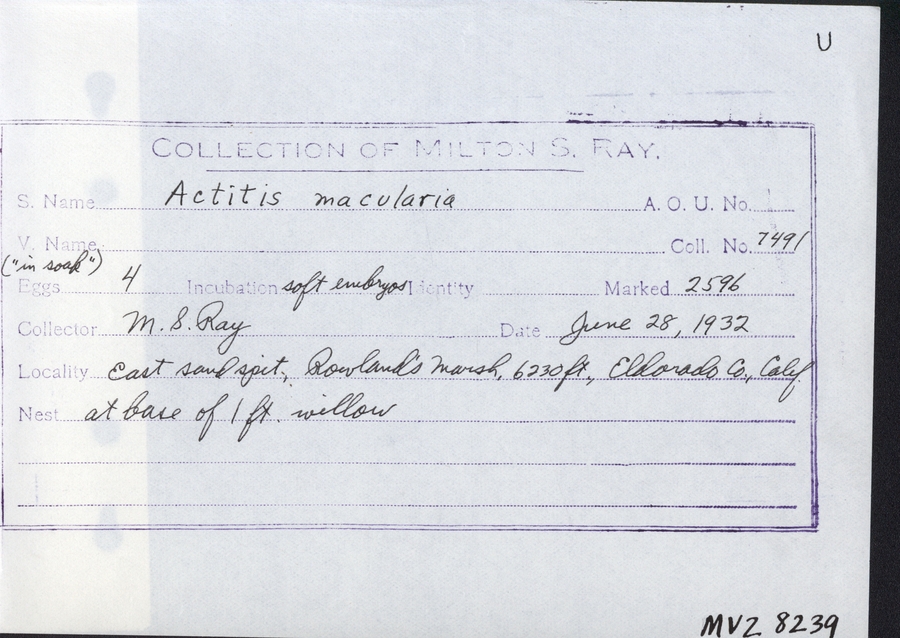 U
COLLECTION OF MILTON S. RAY.
S. Name Actitis macularia A. O. U. No.
V. Name Coll. No. 7491
("in soak")
Eggs 4 Incubation soft embryos Identity Marked 2596
Collector M. S. Ray Date June 28, 1932
Locality East sand spit, Rowland's Marsh, 6230 ft., Eldorado Co., Calif.
Nest at base of 1 ft. willow
MVZ 8239